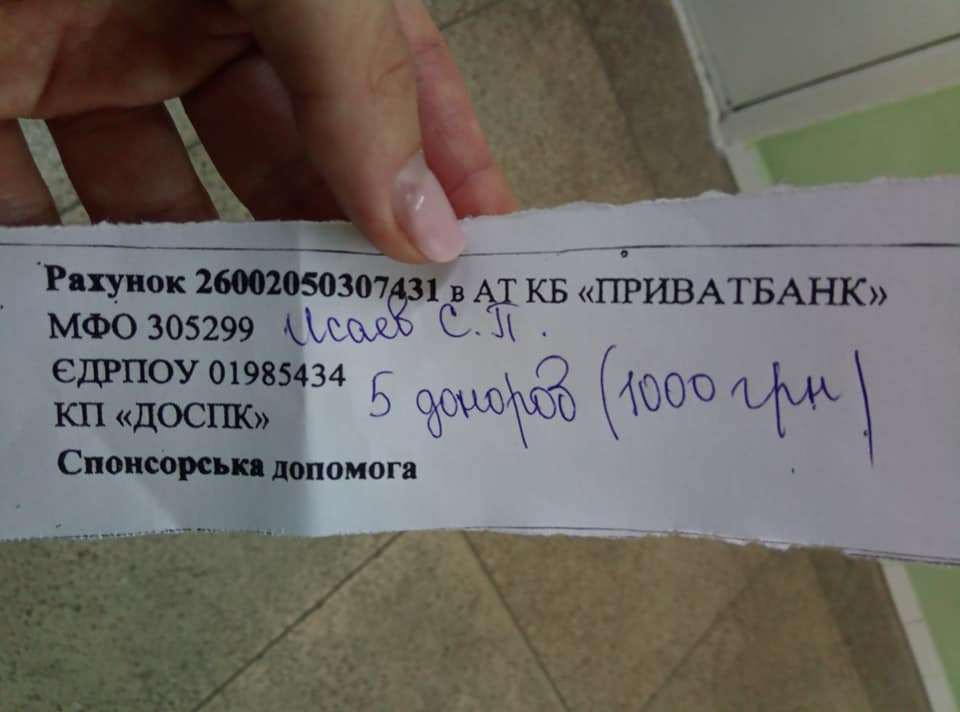 Рахунок 26002050307431 в АТ КБ «ПРИВАТБАНК»
МФО 305299 Исаев С.П.
ЄДРПОУ 01985434
5 доноров (1000 грн)
КП «ДОСПК»
Спонсорська допомога